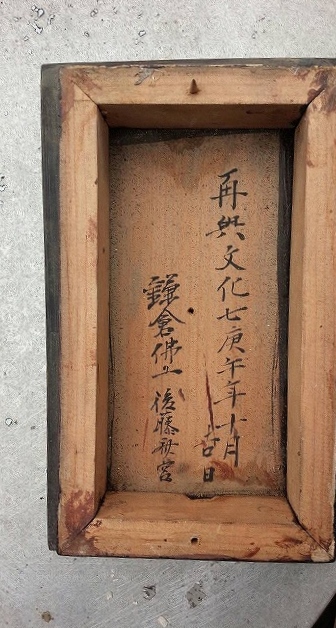 再興文化七庚午年十月吉日
鎌倉佛工後藤斎宮